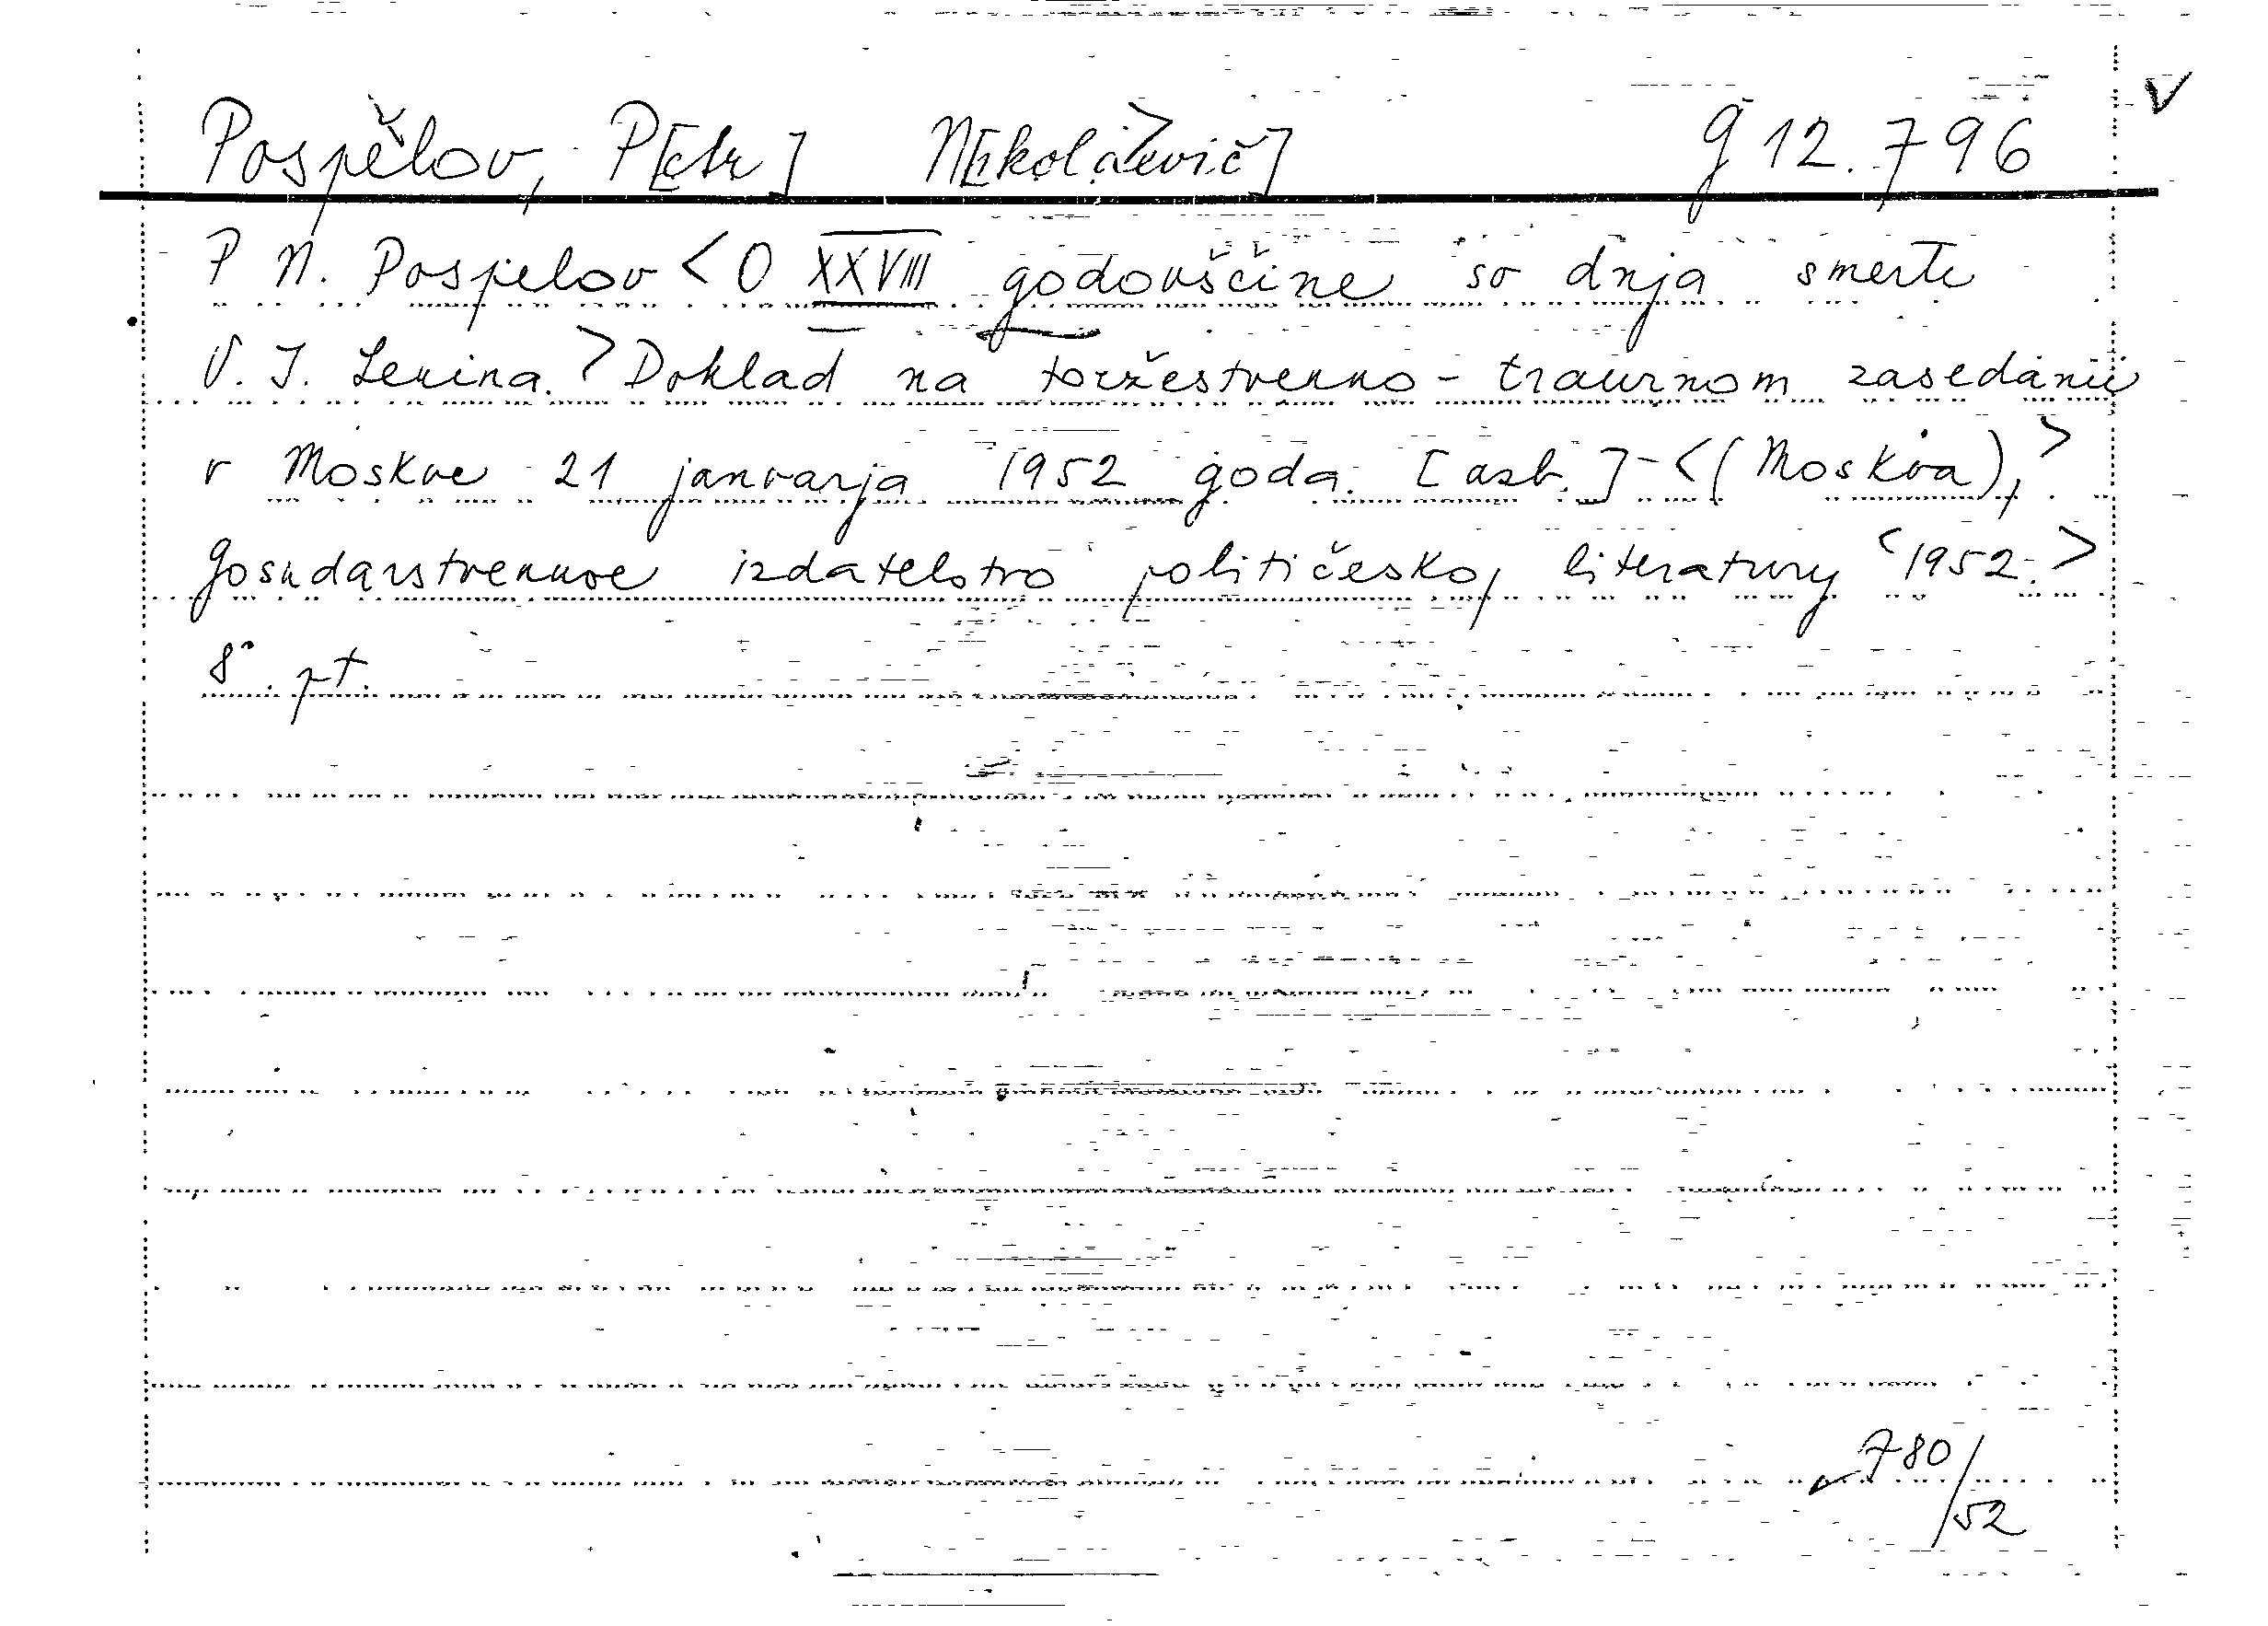 Pospělov, P[etr] N[ikolajevič] g 12.796 V
P N. Pospelov < O XXVIII godovščine so dnja smerti
V. I. Lenina. > Doklad na toržestvenno-traurnom zasedanii
v Moskve 21 janvarja 1952 goda. [azb.] - < (Moskva), >
Gosudarstvennoe izdatelstvo političeskoj literatury < 1952. >
8° pt.
780/52